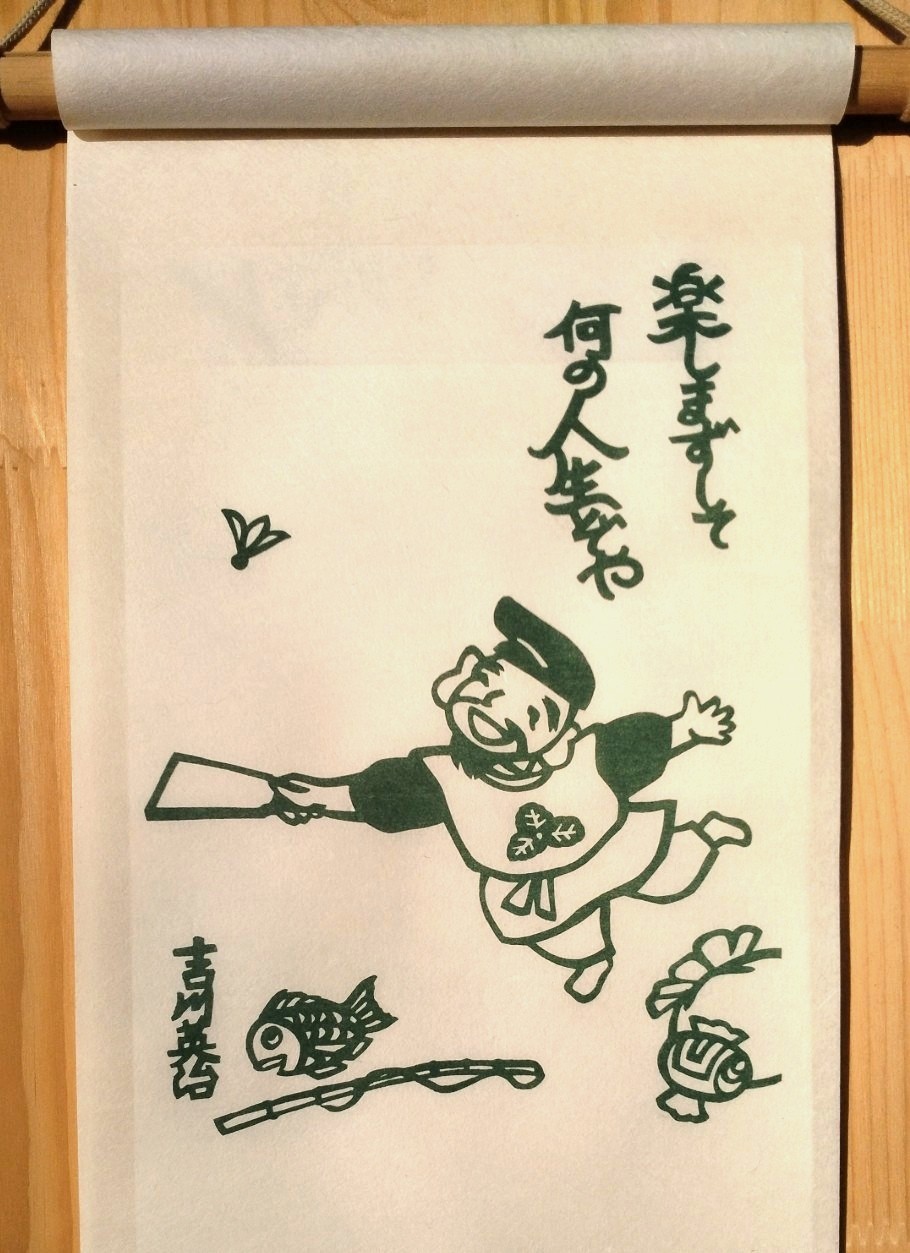 楽しまずして
何の人生ぞや
吉川英治